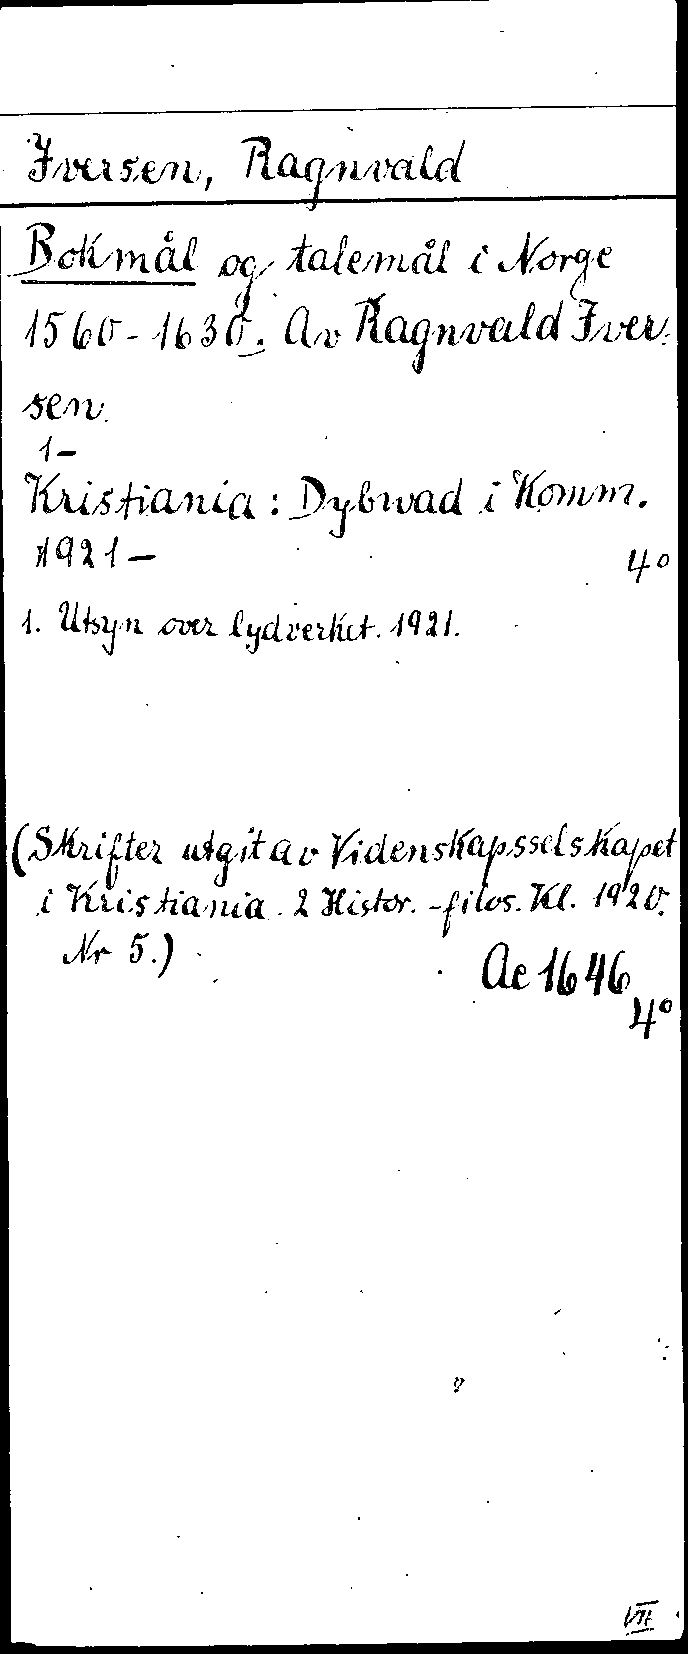 Iversen, Ragnvald
Bokmål og talemål i Norge
1560-1630. Av Ragnvald Iver-
sen.
1-
Kristiania: Dybwad i Komm.
1921-
4°
1. Utsyn over lydverket. 1921.
(Skrifter utgit av Videnskapsselskapet
i Kristiania. 2 Histor.-filos. Kl. 1920.
Nr 5.)
Ac 1646
4°
VII